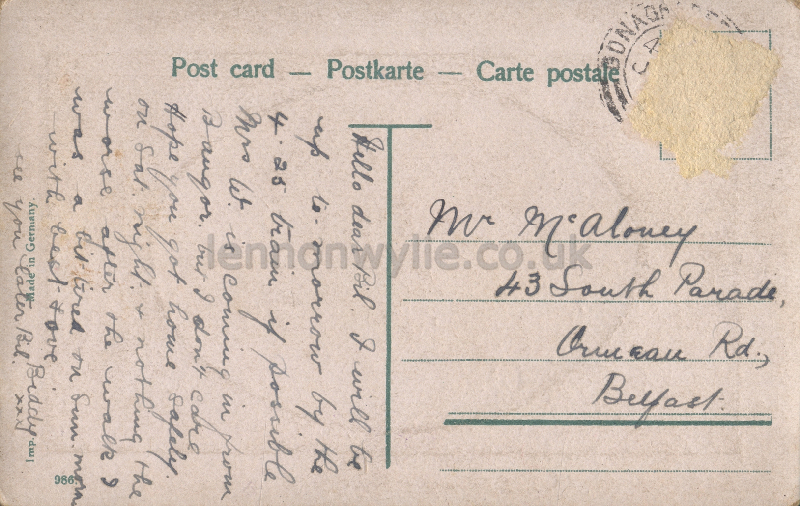 Post card — Postkarte — Carte postale
DONAGH
Hello dear Bil. I will be
up to-morrow by the
4.25 train if possible
Mrs W. is coming in from
Bangor but I don't care
Hope you got home safely.
on Sat. night. & nothing the
worse after the walk I
was a bit tired on Sun. morn
with best love
Biddy
xxx
see you later Bil.
Mr McAloney
43 South Parade,
Ormeau Rd.,
Belfast.
Made in Germany.
Imp.
986
lennonwylie.co.uk